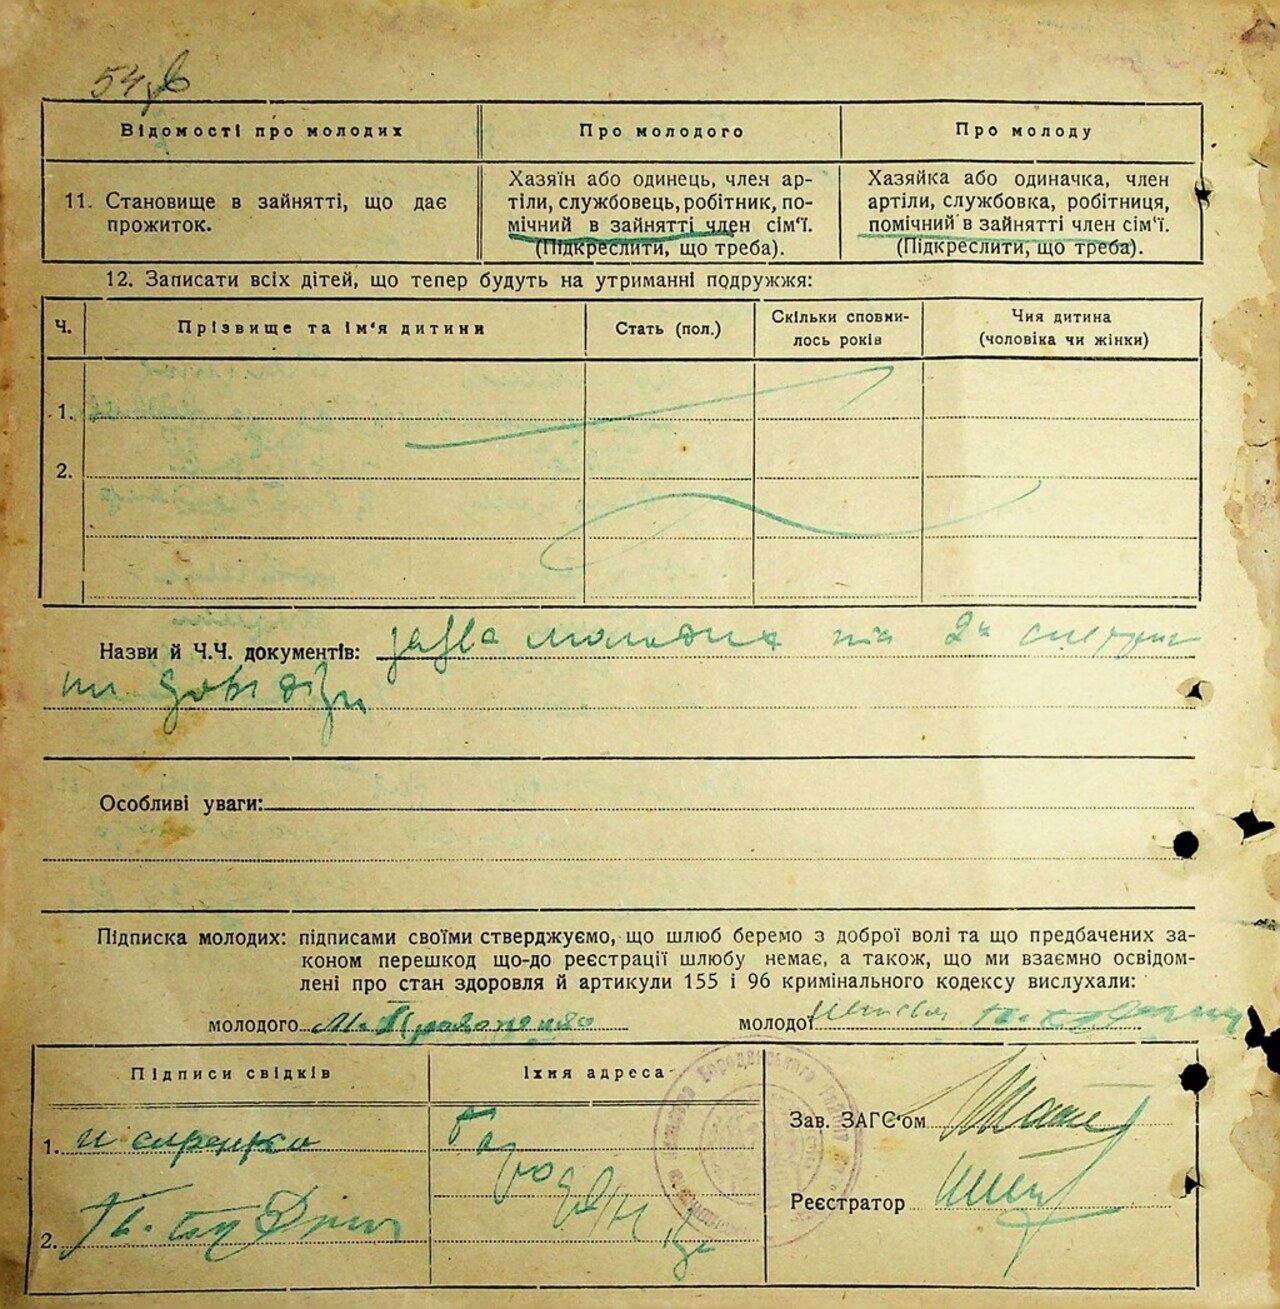 54
Відомості про молодих
Про молодого
Про молоду
11. Становище в зайнятті, що дає
прожиток.
Хазяїн або одинець, член ар-
тіли, службовець, робітник, по-
мічний в зайнятті член сім'ї.
(Підкреслити, що треба).
Хазяйка або одиначка, член
артіли, службовка, робітниця,
помічний в зайнятті член сім'ї.
(Підкреслити, що треба).
12. Записати всіх дітей, що тепер будуть на утриманні подружжя:
Ч.
Прізвище та ім'я дитини
Стать (пол.)
Скільки сповни-
лось років
Чия дитина
(чоловіка чи жінки)
1.
2.
Назви й Ч.Ч. документів: заява молодих
Особливі уваги:
Підписка молодих: підписами своїми стверджуємо, що шлюб беремо з доброї волі та що предбачених за-
коном перешкод що-до реєстрації шлюбу немає, а також, що ми взаємно освідом-
лені про стан здоровля й артикули 155 і 96 кримінального кодексу вислухали:
молодого
молодої
Підписи свідків
Їхня адреса
1.
2.
Зав. ЗАГС'ом
Реєстратор